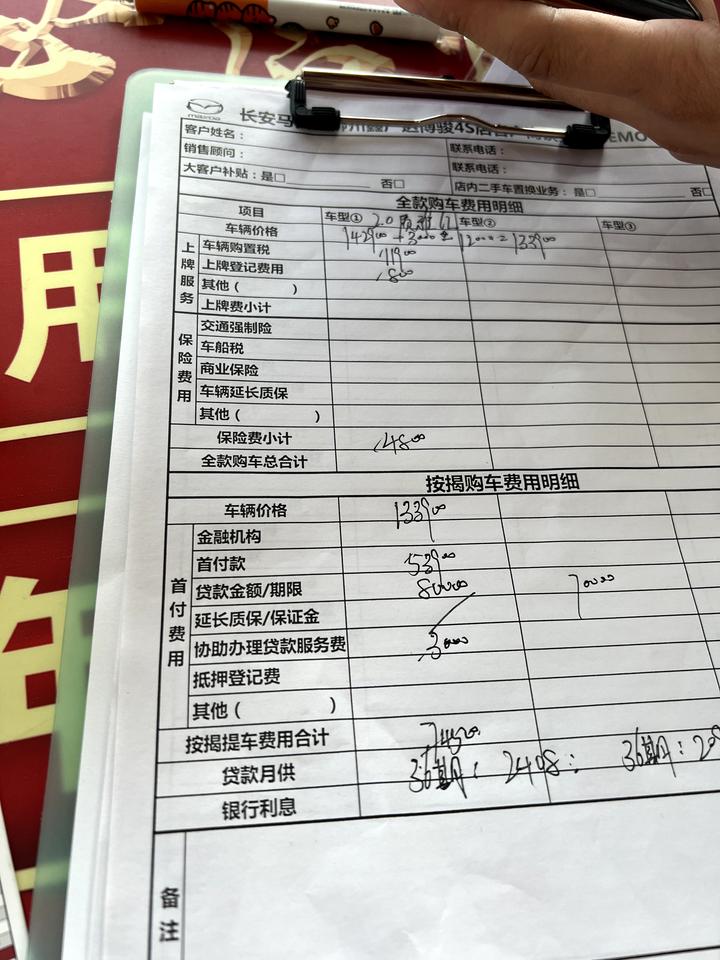 mazda 长安马
客户姓名：
联系电话：
销售顾问：
联系电话：
大客户补贴：是□ 否□
店内二手车置换业务：是□ 否□
全款购车费用明细
项目 车型① 2.0 车型② 车型③
车辆价格 133900
上牌服务
车辆购置税 11900
上牌登记费用 800
其他（ ）
上牌费小计
保险费用
交通强制险
车船税
商业保险
车辆延长质保
其他（ ）
保险费小计 4800
全款购车总合计
按揭购车费用明细
车辆价格 133900
首付费用
金融机构
首付款 53900
贷款金额/期限 80000 70000
延长质保/保证金
协助办理贷款服务费 3000
抵押登记费
其他（ ）
按揭提车费用合计
贷款月供 36期：2408； 36期：
银行利息
备注
用